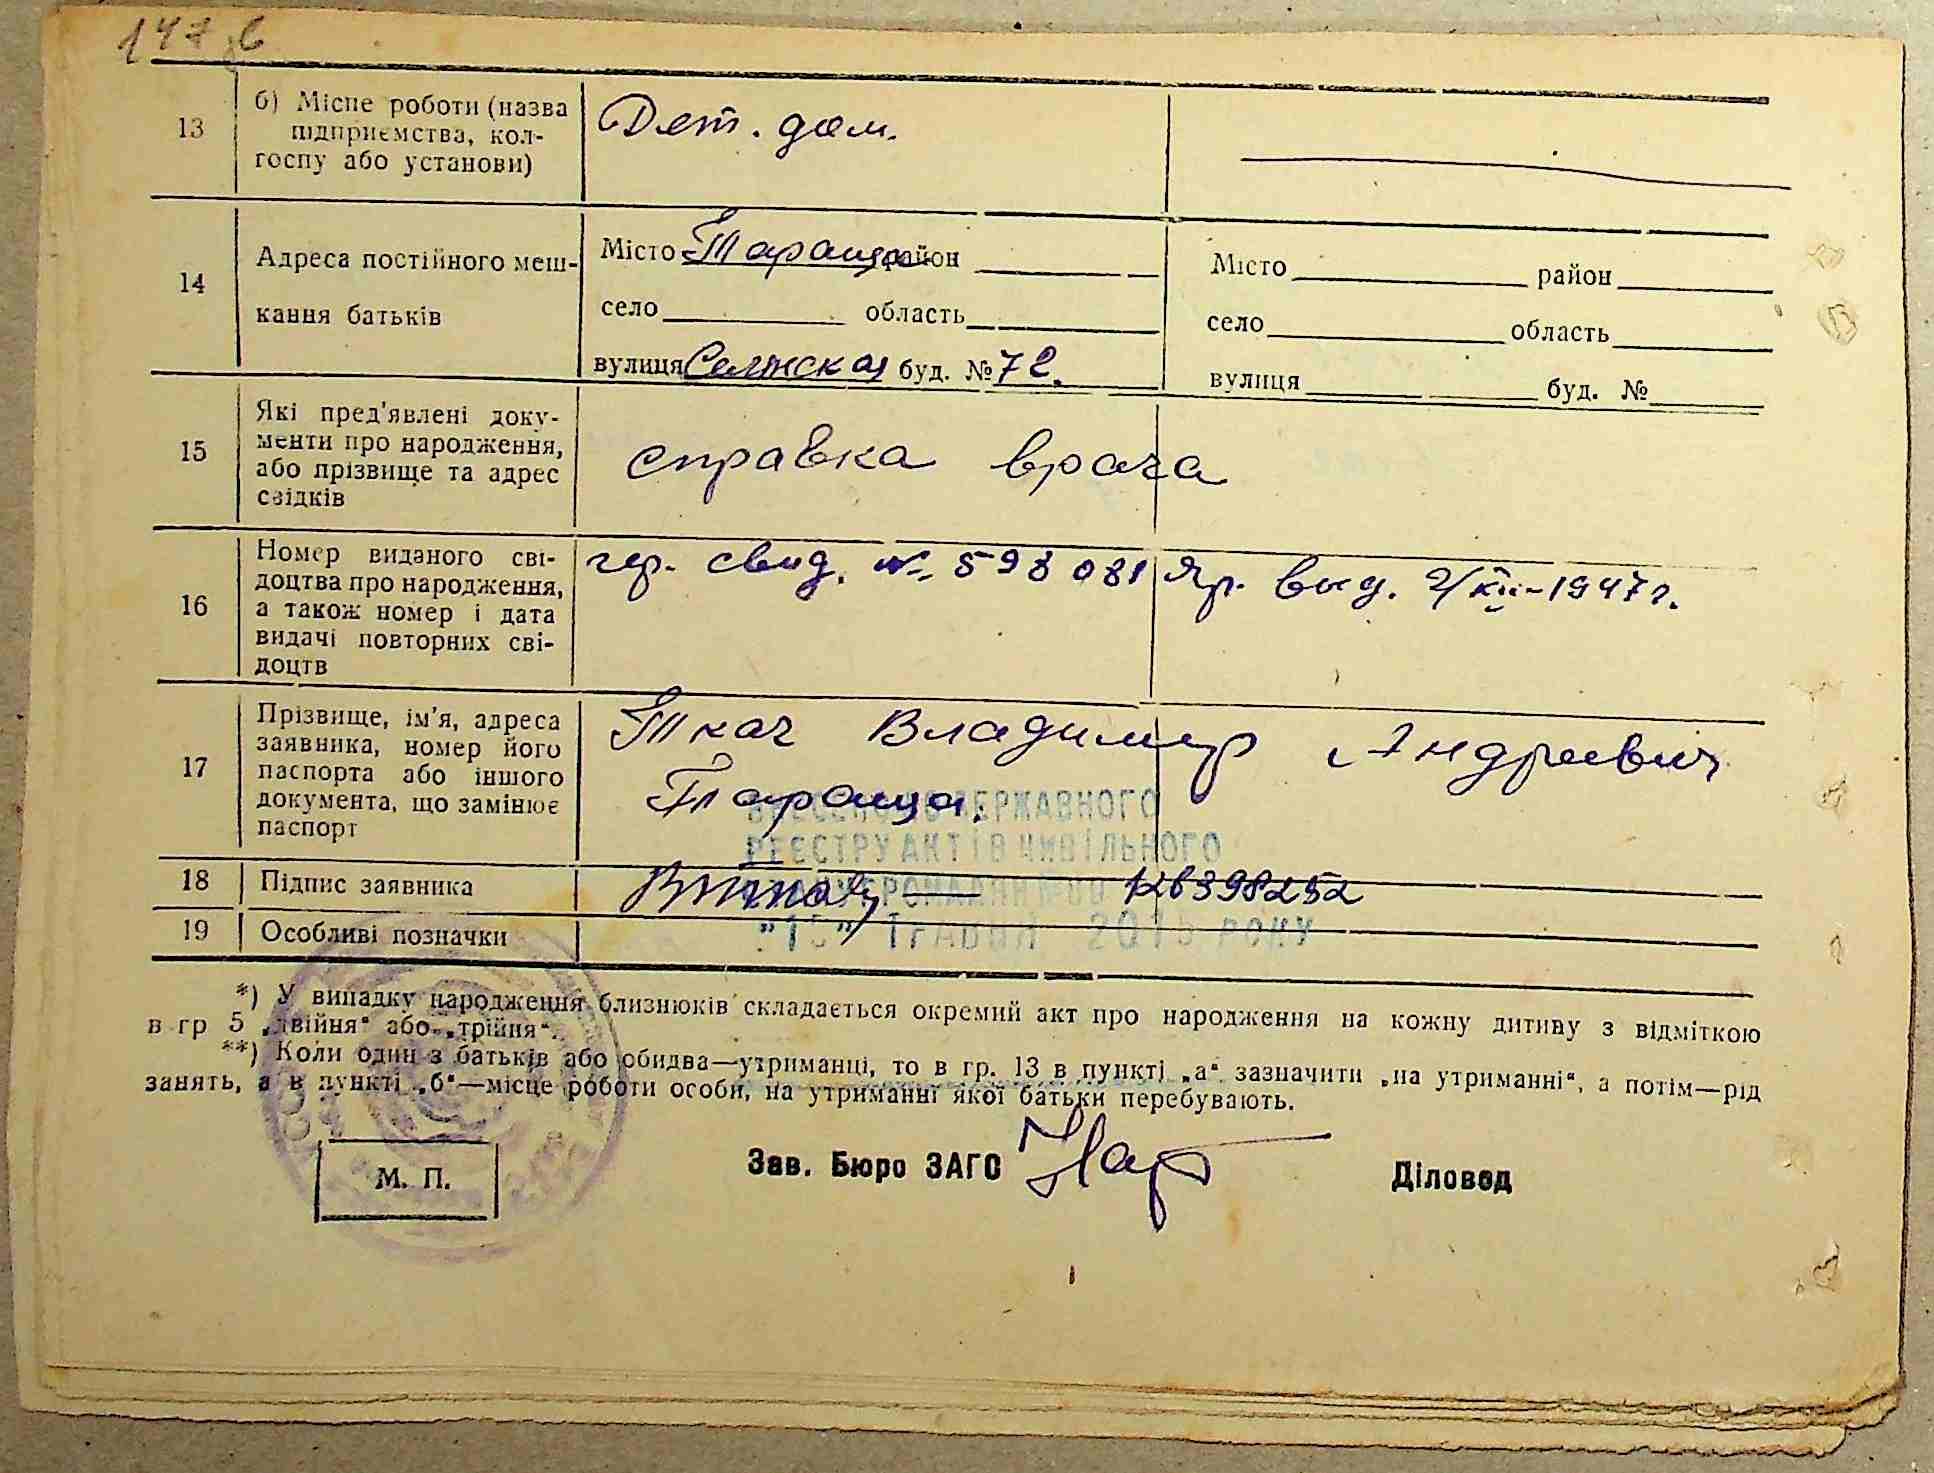 147 в
13
б) Місце роботи (назва
підприємства, кол-
госпу або установи)
Дет. дом.
14
Адреса постійного меш-
кання батьків
Місто Тараща район
село область
вулиця буд. № 72.
Місто район
село область
вулиця буд. №
15
Які пред'явлені доку-
менти про народження,
або прізвище та адрес
свідків
справка врача
16
Номер виданого сві-
доцтва про народження,
а також номер і дата
видачі повторних сві-
доцтв
свид. № 598081 выд. 2/XII-1947г.
17
Прізвище, ім'я, адреса
заявника, номер його
паспорта або іншого
документа, що замінює
паспорт
Ткач Владимир Андреевич
Тараща.
ВНЕСЕНО ДО ДЕРЖАВНОГО
РЕЄСТРУ АКТІВ ЦИВІЛЬНОГО
СТАНУ ГРОМАДЯН № 00 126398252
"15" ТРАВНЯ 2015 РОКУ
18 Підпис заявника
19 Особливі позначки
*) У випадку народження близнюків складається окремий акт про народження на кожну дитину з відміткою
в гр 5 „двійня“ або „трійня“.
**) Коли один з батьків або обидва—утриманці, то в гр. 13 в пункті „а“ зазначити „на утриманні“, а потім—рід
занять, а в пункті „б“—місце роботи особи, на утриманні якої батьки перебувають.
М. П.
Зав. Бюро ЗАГС
Діловод